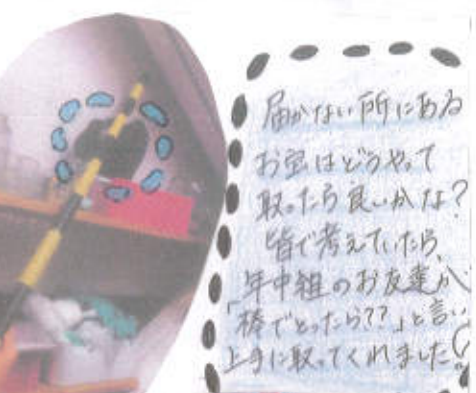 届かない所にある
お宝はどうやって
取ったら良いかな?
皆で考えていたら、
年中組のお友達が
「棒でとったら??」と言い
上手に取ってくれました!